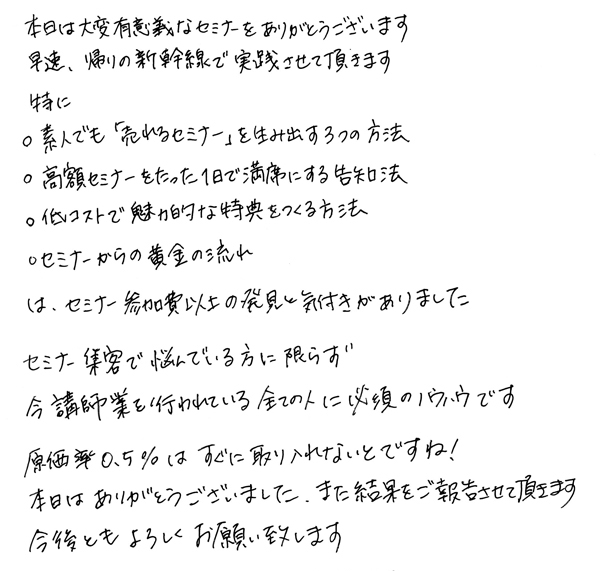 本日は大変有意義なセミナーをありがとうございます
早速、帰りの新幹線で実践させて頂きます
特に
○素人でも「売れるセミナー」を生み出す3つの方法
○高額セミナーをたった1日で満席にする告知法
○低コストで魅力的な特典をつくる方法
○セミナーからの黄金の流れ
は、セミナー参加費以上の発見と気付きがありました
セミナー集客で悩んでいる方に限らず
今講師業を行われている全ての人に必須のノウハウです
原価率0.5%はすぐに取り入れないとですね!
本日はありがとうございました、また結果をご報告させて頂きます
今後ともよろしくお願い致します